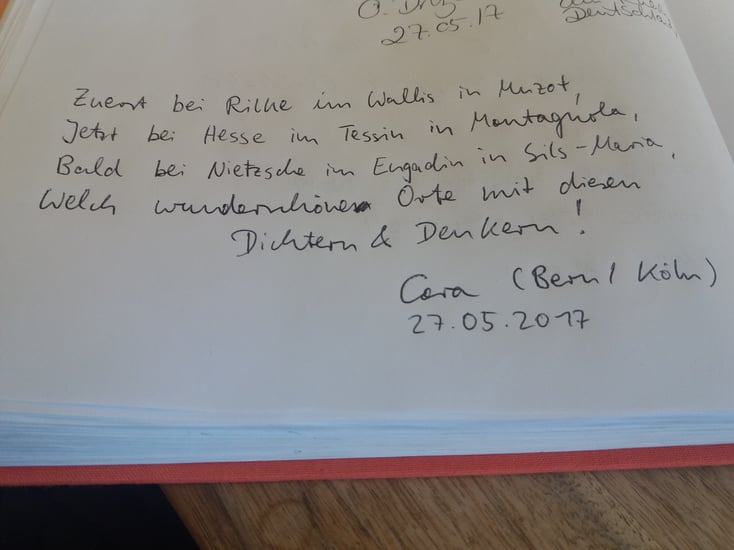 27.05.17
Zuerst bei Rilke im Wallis in Muzot,
Jetzt bei Hesse im Tessin in Montagnola,
Bald bei Nietzsche im Engadin in Sils-Maria,
Welch wunderschöner Orte mit diesen
Dichtern & Denkern!
Cora (Bern / Köln)
27.05.2017